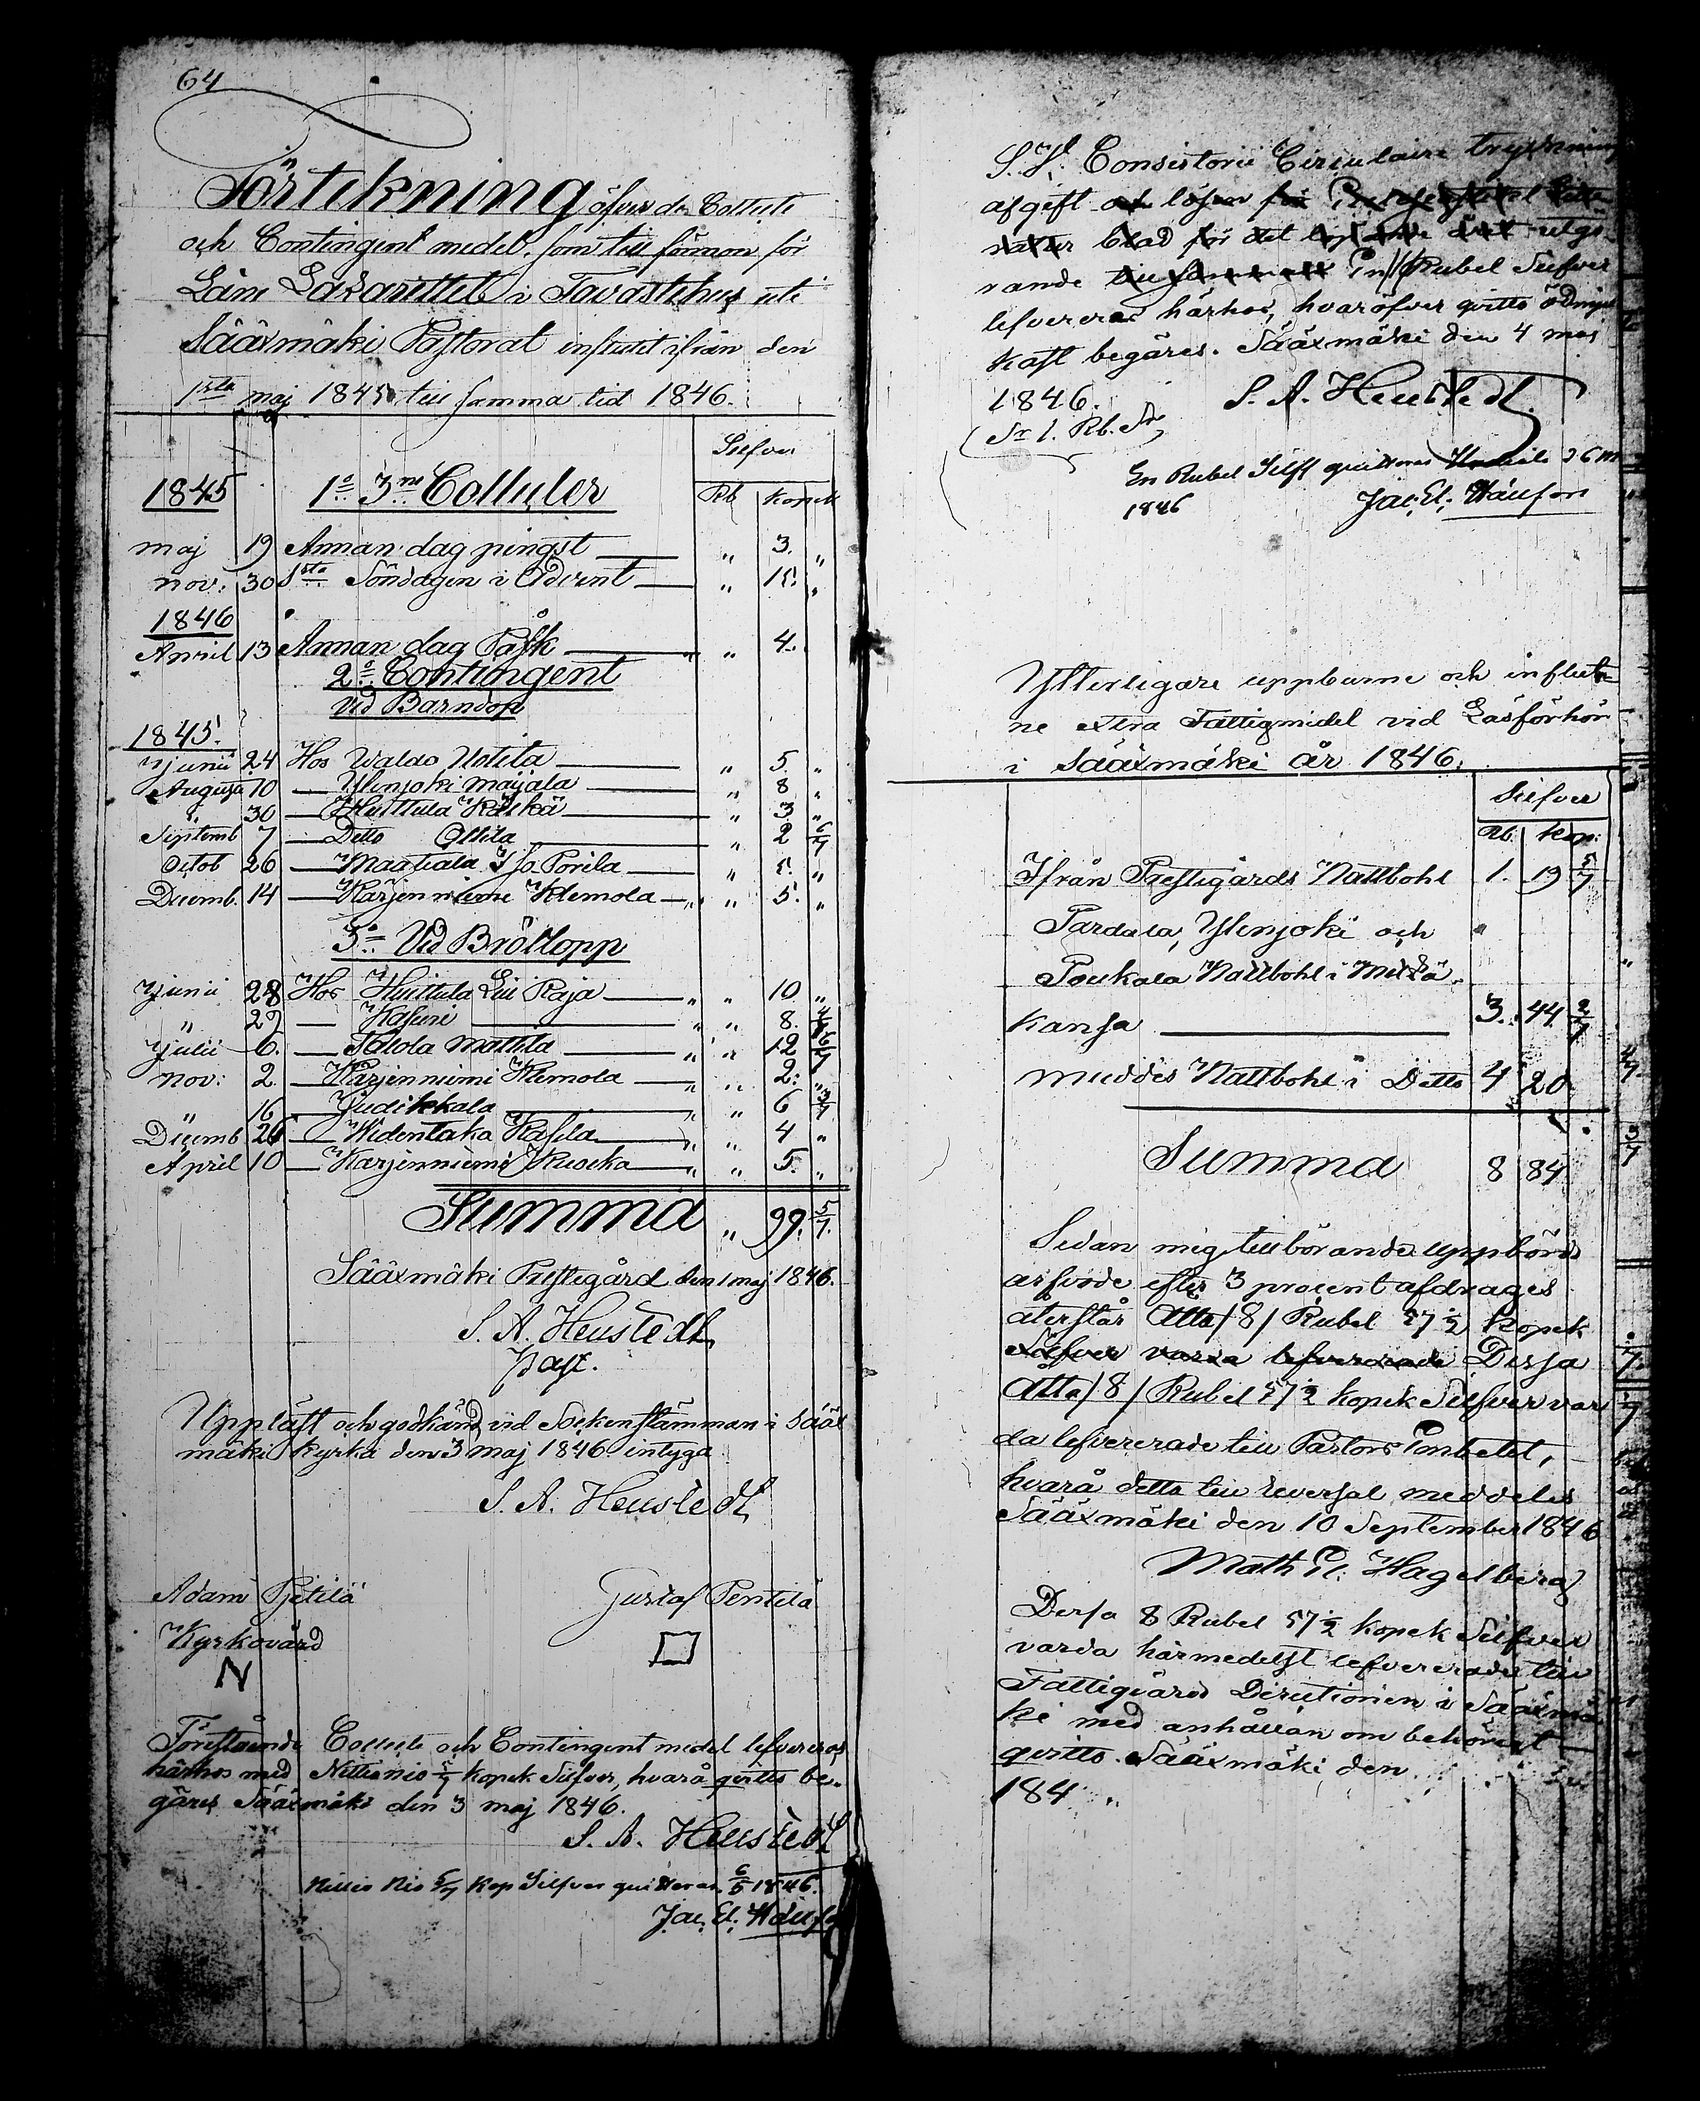 64
Förtekning öfver de Collect
och Contingent medel, som till förmon för
Läns Lazarettet i Tavastehus uti
Sääxmäki Pastorat influtit ifrån den
1sta maj 1845 till samma tid 1846.
Silfver
1845 1o 3ne Collecter Rb kopek
maj 19 Annan dag pingst " 3. "
nov: 30 1sta Söndagen i Advent " 15. "
1846
April 13 Annan dag Påsk " 4.
2o Contingent
Vid Barndop
1845.
Junii 24 Hos Waldo Notila " 5 "
Augusti 10 — Ylenjoki Maijala " 8 "
" 30 — Huittula " 3 "
Septemb 7 — Detto Ollila " 2 6/7
Octob 26 — Maatiala Iso Porila " 5. "
Decemb. 14 — Kärjenniemi Klemola " 5. "
3o Vid Bröllopp
Junii 28 Hos Huittula Raja " 10 "
" 29 — Kasuri " 8. 4/7
Julii 6. — Mattila " 12 6/7
nov: 2. — Kärjenniemi Klemola " 2: "
" 16 — Judikkala " 6 3/7
Decemb 26 — Widentaka Kasila " 4 "
April 10 — Karjenniemi Kuocka " 5. "
Summa " 99. 5/7.
Sääxmäki Prestegård den 1 maj 1846.
S. A. Heustedt
past.
Uppläst och godkänd vid Sockenstämman i Sääx
mäki Kyrka den 3 maj 1846 intyga
S. A. Heustedt
Adam Pjetilä Gustaf Pentilä
Kyrkovärd
N
Förestående Collecte och Contingent medel lefvereras
härhos med Nittionio 5/7 kopek Silfver, hvarå qvitto be-
gäres Sääxmäki den 3 maj 1846.
S. A. Heustedt
Nittio Nio 5/7 Kop Silfver quitteras 6/5 1846.
Jac. El.
S. H. Consistorii Circulaire tryckning
afgift och lösen för
blad för det utgö
rande En/1/Rubel Silfver
lefvereras härhos, hvaröfver qvitto ödmju
kast begäres. Sääxmäki den 4 maj
1846. S. A. Heustedt
Sr 1. Rb. Sr
En Rubel Silfr quitteras 6 m
1846 Jac. El.
Ytterligare uppburne och influt
ne extra Fattigmedel vid Läsförhör
i Sääxmäki år 1846.
Silfver
Rb. Kop:
Ifrån Prestegårds Nattbohl 1. 19 5/7
Pardala, Ylenjoki och "
Poukala Nattbohl i
kansa 3. 44 2/7
Muddis Nattbohl i Detto 4 20
Summa 8 84
Sedan mig tillbörande uppbörds
arfvode efter 3 procent afdrages
återstår Åtta/8/Rubel 57 1/2 kopek
Silfver varda lefvererade Dessa
Åtta/8/Rubel 57 1/2 kopek Silfver var
da lefvererade till Pastors Embetet,
hvarå detta till reversal meddeles
Sääxmäki den 10 September 1846
Math El. Hagelberg
Dessa 8 Rubel 57 1/2 kopek Silfver
varda härmedelst lefvererade till
Fattigvårds Directionen i Sääxmä
ki med anhållan om behörigt
qvitto. Sääxmäki den
184 "